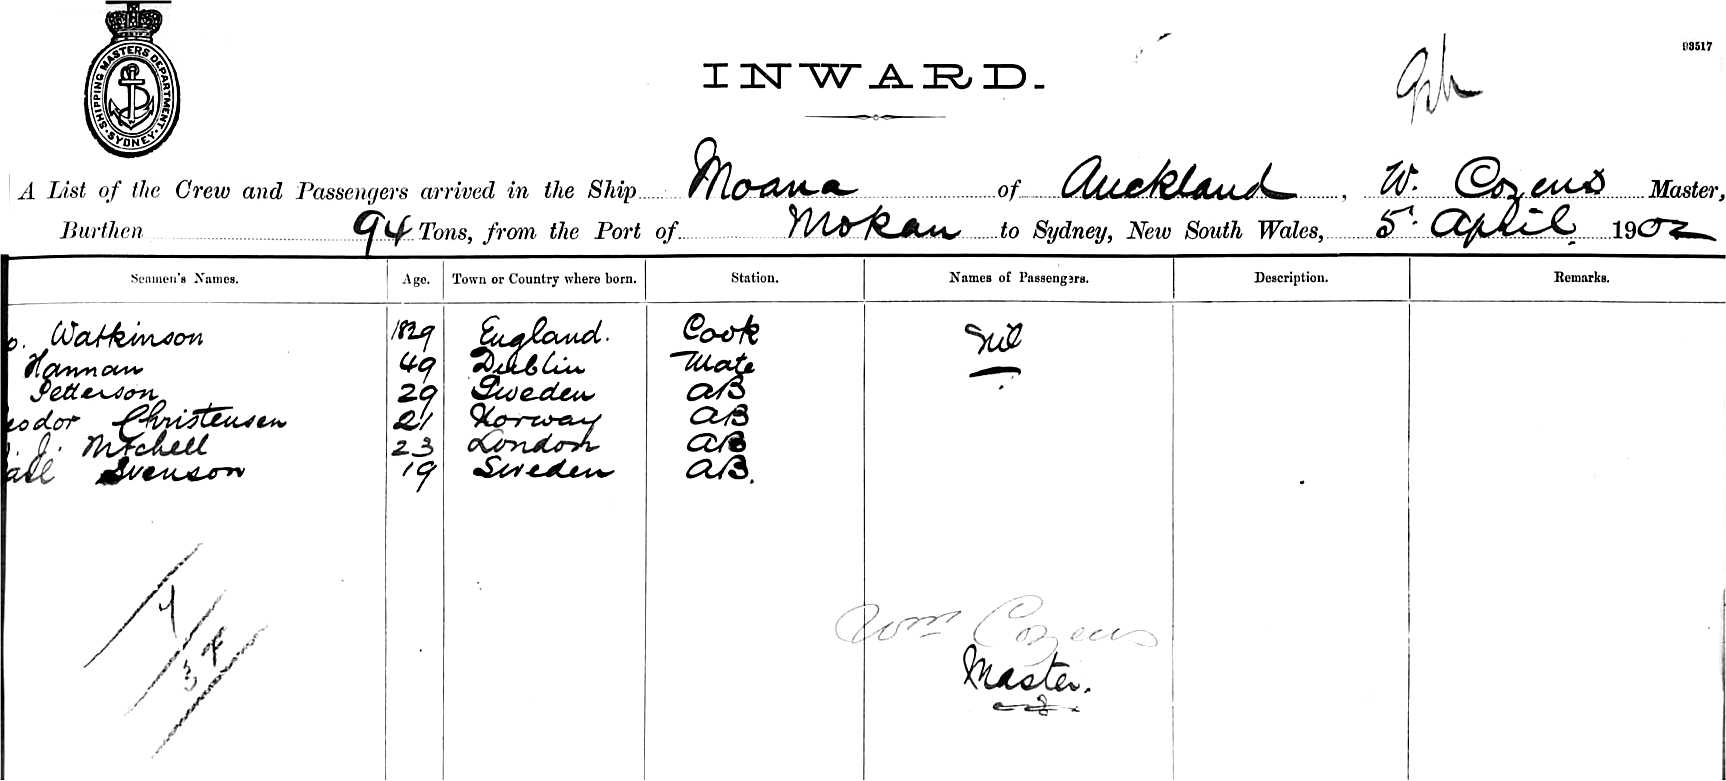 SHIPPING MASTERS DEPARTMENT. SYDNEY.
93517
INWARD.
A List of the Crew and Passengers arrived in the Ship Moana of Auckland, W. Cozens Master,
Burthen 94 Tons, from the Port of Mokau to Sydney, New South Wales, 5 April 1902
Seamen's Names. Age. Town or Country where born. Station. Names of Passengers. Description. Remarks.
o. Watkinson 29 England. Cook Nil
Hannan 49 Dublin Mate
Petterson 29 Sweden AB
eodor Christensen 21 Norway AB
J. Mitchell 23 London AB
Svenson 19 Sweden AB.
Wm Cozens
Master.